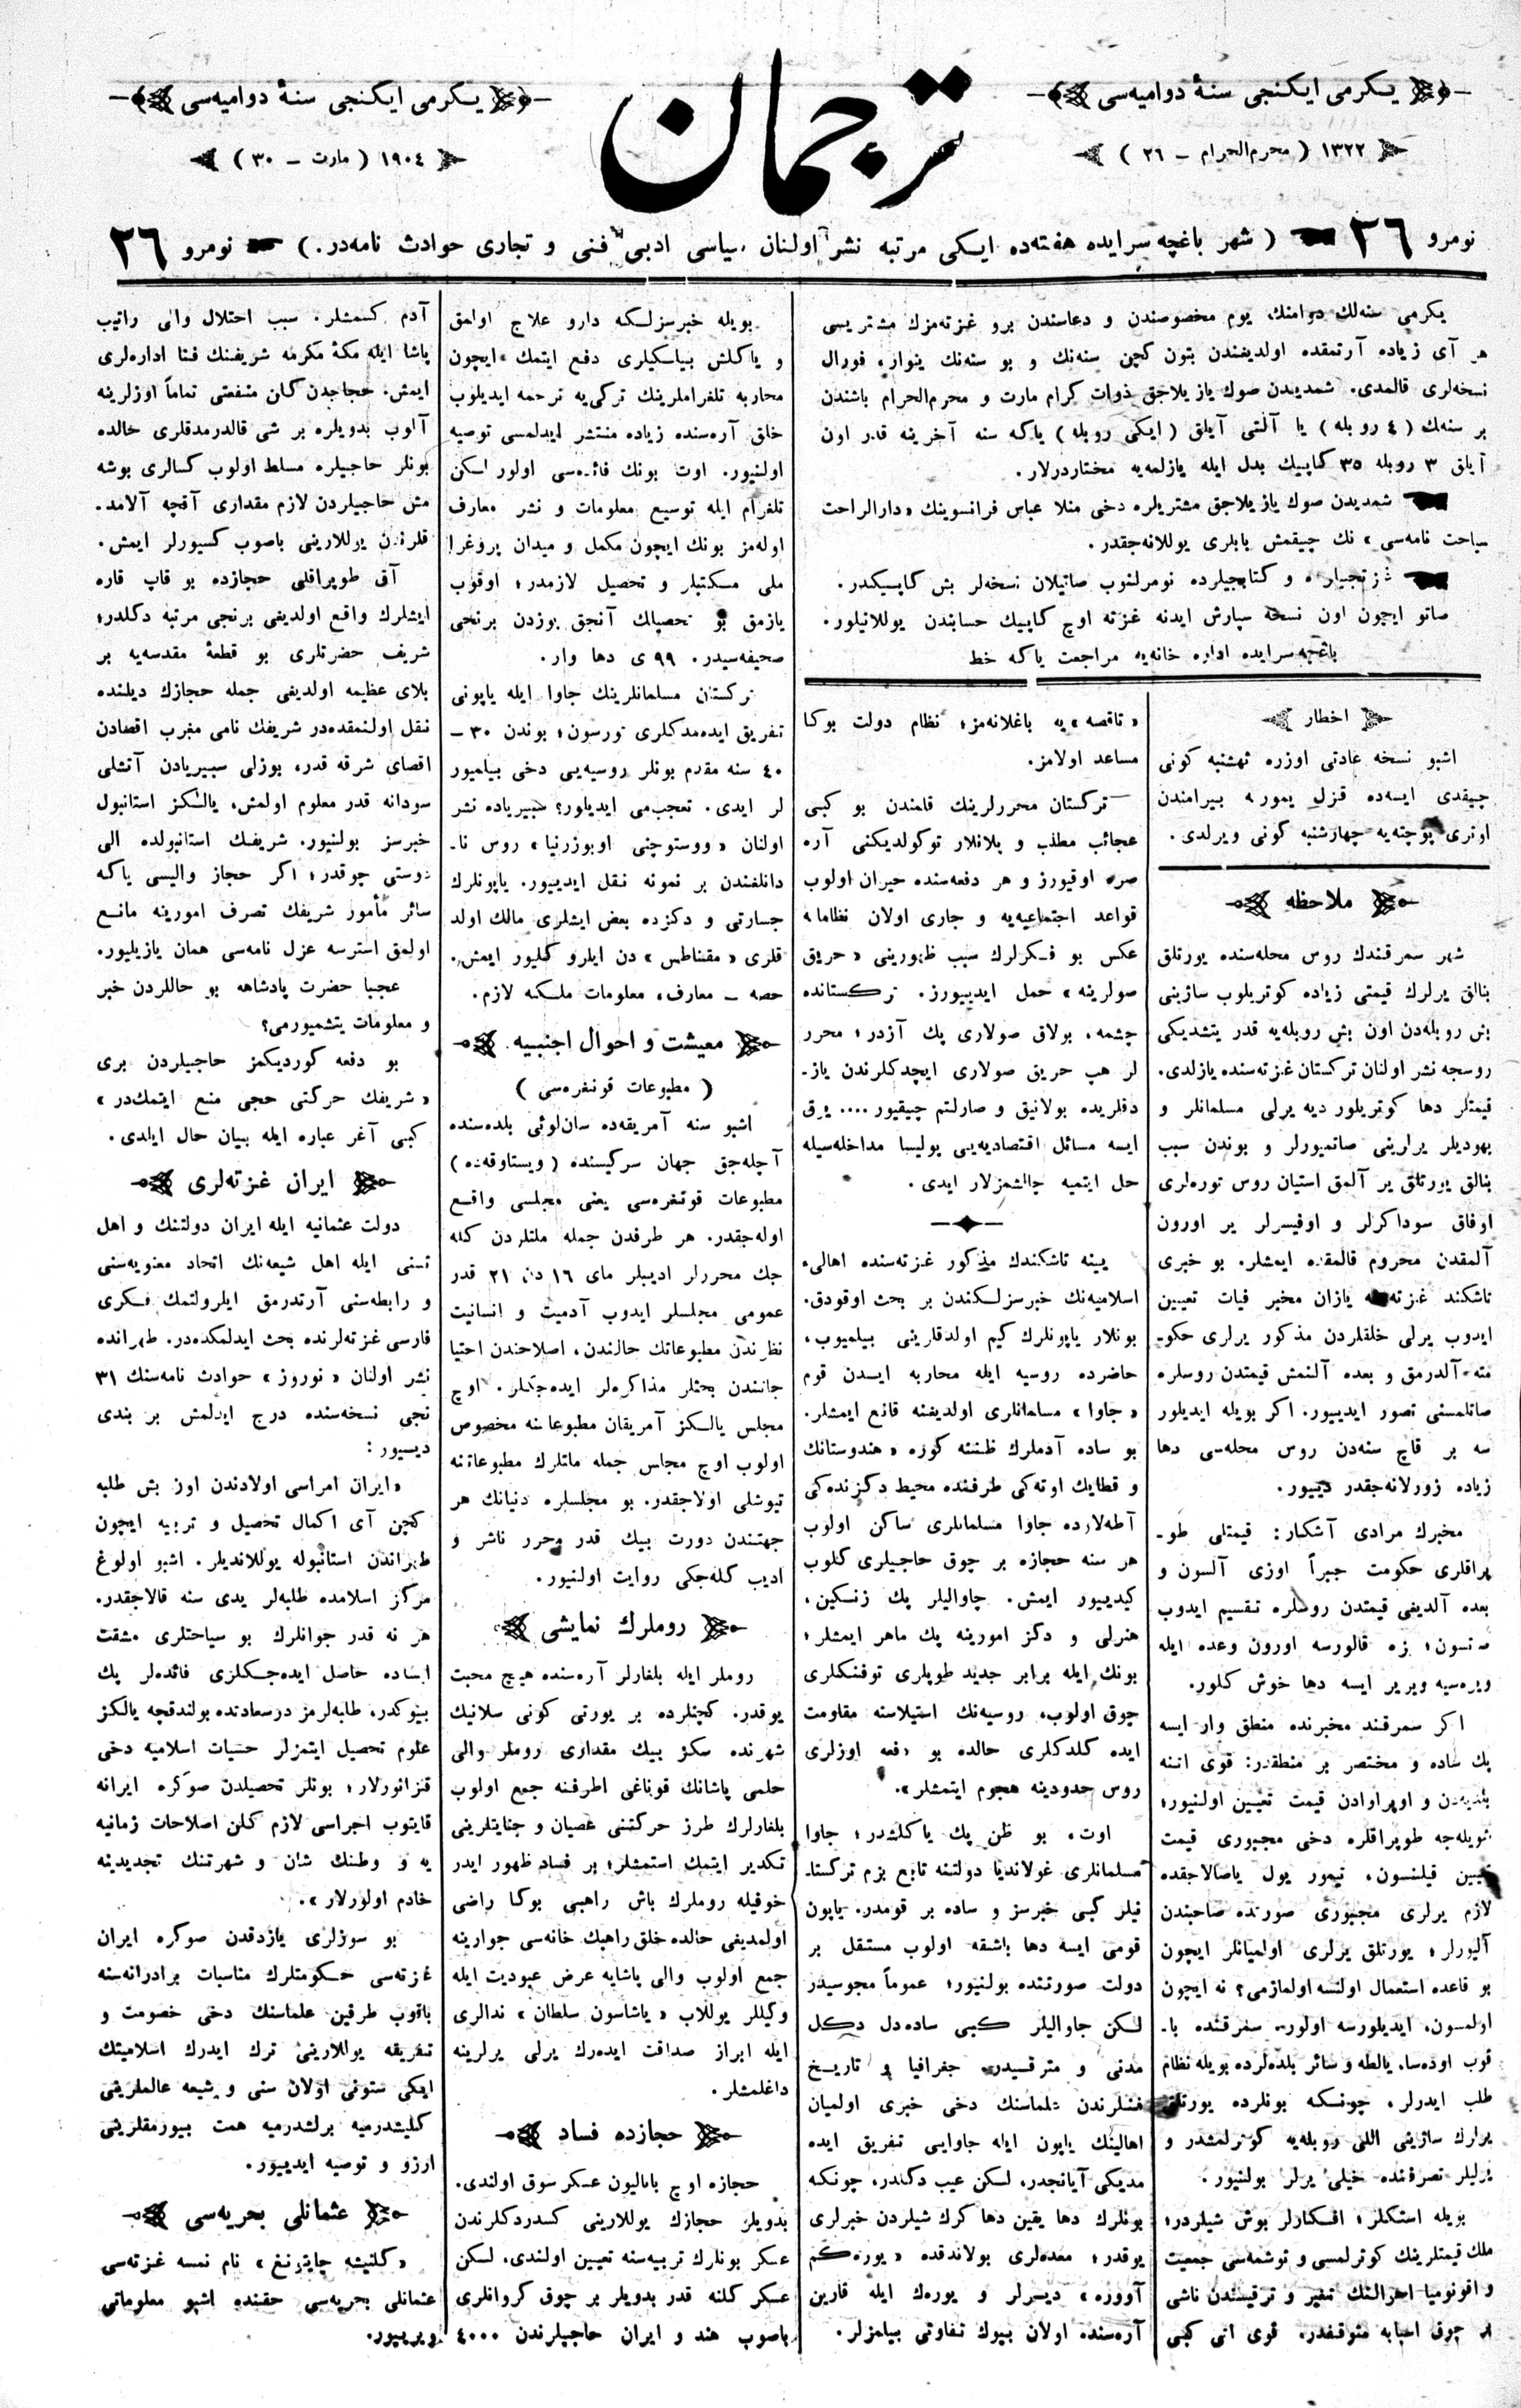 یكرمی ایكنجی سنۀ دوامیه‌سی
۱۳۲۲ ( محرم‌الحرام – ۲٦ )
ترجمان
یكرمی ایكنجی سنۀ دوامیه‌سی
۱۹۰٤ ( مارت – ۳۰ )
نومرو ۲٦ ( شهر باغچه سرایده هفته‌ده ایكی مرتبه نشر اولنان سیاسی ادبی فنی و تجاری حوادث نامه‌در . ) نومرو ۲٦
یكرمی سنه‌لك دوامنك، یوم مخصوصندن و دعاسندن برو غزته‌مزك مشتریسی
هر آی زیاده آرتمقده اولدیغندن بتون كچن سنه‌نك و بو سنه‌نك ینوار، فورال
نسخه‌لری قالمدی. شمدیدن صوك یازیلاجق ذوات كرام مارت و محرم‌الحرام باشندن
بر سنه‌لك ( ٤ روبله ) یا آلتی آیلق ( ایكی روبله ) یاكه سنه آخرینه قدر اون
آیلق ۳ روبله ۳٥ كاپیك بدل ایله یازلمه‌یه مختاردرلار .
شمدیدن صوك یازیلاجق مشتریلره دخی منلا عباس فرانسوینك « دارالراحت
سیاحت نامه‌سی » نك چیقمش بابلری یوللانه‌جقدر.
و كتابجیلرده نومرلنوب صاتیلان نسخه‌لر بش كاپیكدر.
صاتو ایچون اون نسخه سپارش ایدنه غزته اوچ كاپیك حسابندن یوللانیلور.
باغچه سرایده اداره خانه‌یه مراجعت یاكه خط
اخطار
اشبو نسخه عادتی اوزره ثهشنبه كونی
چیقدی ایسه‌ده قزل یمورطه بیرامندن
اوتری پوچته‌یه چهارشنبه كونی ویرلدی.
ملاحظه
شهر سمرقندك روس محله‌سنده یورتلق
بنالق یرلرك قیمتی زیاده كوتریلوب ساژینی
بش روبله‌دن اون بش روبله‌یه قدر یتشدیكی
روسجه نشر اولنان تركستان غزته‌سنده یازلدی.
قیمتلر دها كوتریلور دیه یرلی مسلمانلر و
یهودیلر یرلرینی صاتمیورلر و بوندن سبب
بنالق یورتلق یر آلمق استیان روس توره‌لری
اوفاق سوداكرلر و اوفیسرلر یر اورون
آلمقدن محروم قالمقده ایمشلر. بو خبری
تاشكند غزته‌سنه یازان مخبر فیات تعیین
ایدوب یرلی خلقلردن مذكور یرلری حكو-
مته آلدرمق و بعده آلنمش قیمتدن روسلره
صاتلمسنی تصور ایدییور. اكر بویله ایدیلور
سه بر قاچ سنه‌دن روس محله‌سی دها
زیاده زورلانه‌جقدر دییور.
مخبرك مرادی آشكار: قیمتلی طو-
پراقلری حكومت جبراً اوزی آلسون و
بعده آلدیغی قیمتدن روسلره تقسیم ایدوب
صاتسون؛ زه قالورسه اورون وعده ایله
ویره‌سیه ویریر ایسه دها خوش كلور.
اكر سمرقند مخبرنده منطق وار ایسه
پك ساده و مختصر بر منطقدر: قوی اتنه
و اوپراوادن قیمت تعیین اولنیور؛
شویله‌جه طوپراقلره دخی مجبوری قیمت
تعیین قیلنسون، تیمور یول یاصالاجقده
لازم یرلری مجبوری صورتده صاحبندن
آلیورلر؛ یورتلق یرلری اولمیانلر ایچون
بو قاعده استعمال اولنسه اولمازمی؟ نه ایچون
اولمسون، ایدیلورسه اولور. سمرقنده با-
قوب اوده‌سا، یالطه و سائر بلده‌لرده بویله نظام
طلب ایدرلر، چونكه بونلرده یورتلق
یرلرك ساژینی اللی روبله‌یه كوترلمشدر و
یرلیلر تصرفنده خیلی یرلر بولنیور.
بویله استكلر؛ افكارلر بوش شیلردر؛
ملك قیمتلرینك كوترلمسی و توشمه‌سی جمعیت
و اقونومیا احوالنك تغیر و ترقیسندن ناشی
بر چوق اسبابه متوقفدر. قوی اتی كبی
« تاقصه » یه باغلانه‌مز؛ نظام دولت بوكا
مساعد اولامز.
تركستان محررلرینك قلمندن بو كبی
عجائب مطلب و پلانلار توكولدیكنی آره
صره اوقیورز و هر دفعه‌سنده حیران اولوب
قواعد اجتماعیه‌یه و جاری اولان نظاماته
عكس بو فكرلرك سبب ظهورینی « حریق
صولرینه » حمل ایدییورز. تركستانده
چشمه، بولاق صولاری پك آزدر؛ محرر
لر هپ حریق صولاری ایچدكلرندن یاز-
دقلریده بولانیق و صارلتم چیقیور .... یوق
ایسه مسائل اقتصادیه‌یی پولیسا مداخله‌سیله
حل ایتمیه چالشمزلار ایدی.
یینه تاشكندك مذكور غزته‌سنده اهالیء
اسلامیه‌نك خبرسزلكندن بر بحث اوقودق.
بونلار یاپونلرك كیم اولدقارینی بیلمیوب،
حاضرده روسیه ایله محاربه ایسدن قوم
« جاوا » مسلمانلری اولدیغنه قانع ایمشلر.
بو ساده آدملرك ظننه كوره « هندوستانك
و قطایك اوته‌كی طرفنده محیط دكزنده‌كی
آطه‌لارده جاوا مسلمانلری ساكن اولوب
هر سنه حجازه بر چوق حاجیلری كلوب
كیدییور ایمش. چاوالیلر پك زنكین،
هنرلی و دكز امورینه پك ماهر ایمشلر؛
بونك ایله برابر جدید طوپلری توفنكلری
چوق اولوب، روسیه‌نك استیلاسنه مقاومت
ایده كلدكلری حالده بو دفعه اوزلری
روس حدودینه هجوم ایتمشلر ».
اوت، بو ظن پك یاكلشدر؛ جاوا
مسلمانلری غولاندیا دولتنه تابع بزم تركستا-
نیلر كبی خبرسز و ساده بر قومدر. یاپون
قومی ایسه دها باشقه اولوب مستقل بر
دولت صورتنده بولنیور؛ عموماً مجوسیدر
لكن جاوالیلر كبی ساده‌دل دكل
مدنی و مترقیدر. جغرافیا و تاریخ
فنلرندن علماسنك دخی خبری اولمیان
اهالینك یاپون ایله جاوایی تفریق ایده
مدیكی آیانجدر، لكن عیب دكلدر، چونكه
بونلرك دها یقین دها كرك شیلردن خبرلری
یوقدر؛ معده‌لری بولاندقده « یوره‌كم
آووره » دیسرلر و یوره‌ك ایله قارین
آره‌سنده اولان بیوك تفاوتی بیلمزلر.
بویله خبرسزلكه دارو علاج اولمق
و یاكلش بیاسكیلری دفع ایتمك ایچون
محاربه تلغراملرینك تركی‌یه ترجمه ایدیلوب
خلق آره‌سنده زیاده منتشر ایدلمسی توصیه
اولنیور. اوت بونك فائده‌سی اولور لكن
تلغرام ایله توسیع معلومات و نشر معارف
اوله‌مز بونك ایچون مكمل و میدان پروغرا
ملی مكتبلر و تحصیل لازمدر؛ اوقوب
یازمق بو تحصیلك آنجق یوزدن برنجی
صحیفه‌سیدر. ۹۹ ی دها وار.
تركستان مسلمانلرینك جاوا ایله یاپونی
تفریق ایده‌مدكلری تورسون؛ بوندن ۳۰ –
٤۰ سنه مقدم بونلر روسیه‌یی دخی بیلمیور
لر ایدی. تعجب‌می ایدیلور؟ سیبریاده نشر
اولنان « ووستوچنی اوبوزرنیا » روس نا-
دانلغندن بر نمونه نقل ایدییور. یاپونلرك
جسارتی و دكزده بعض ایشلری مالك اولد
قلری « مقناطس » دن ایلرو كلیور ایمش.
حصه – معارف، معلومات ملكنه لازم.
معیشت و احوال اجنبیه
( مطبوعات قونغره‌سی )
اشبو سنه آمریقه‌ده سان‌لوئی بلده‌سنده
آچله‌جق جهان سركیسنده ( ویستاوقه‌ده )
مطبوعات قونغره‌سی یعنی مجلسی واقع
اوله‌جقدر. هر طرفدن جمله ملتلردن كله
جك محررلر ادیبلر مای ۱٦ دن ۲۱ قدر
عمومی مجلسلر ایدوب آدمیت و انسانیت
نظرندن مطبوعاتك حالندن، اصلاحندن احتیا
جاتندن بحثلر مذاكره‌لر ایده‌جكلر. اوچ
مجلس یالكز آمریقان مطبوعاتنه مخصوص
اولوب اوچ مجلس جمله ملتلرك مطبوعاتنه
تیوشلی اولاجقدر. بو مجلسلره دنیانك هر
جهتندن دورت بیك قدر محرر ناشر و
ادیب كله‌جكی روایت اولنیور.
روملرك نمایشی
روملر ایله بلغارلر آره‌سنده هیچ محبت
یوقدر. كچنلرده بر یورتی كونی سلانیك
شهرنده سكز بیك مقداری روملر والی
حلمی پاشانك قوناغی اطرفنه جمع اولوب
بلغارلرك طرز حركتنی عصیان و جنایتلرینی
تكدیر ایتمك استمشلر؛ بر فساد ظهور ایدر
خوفیله روملرك باش راهبی بوكا راضی
اولمدیغی حالده خلق راهبك خانه‌سی جوارینه
جمع اولوب والی پاشایه عرض عبودیت ایله
وكیللر یوللاب « یاشاسون سلطان » ندالری
ایله ابراز صداقت ایده‌رك یرلی یرلرینه
داغلمشلر.
حجازده فساد
حجازه اوچ باتالیون عسكر سوق اولندی.
بدویلر حجازك یوللارینی كسدردكلرندن
عسكر بونلرك تربیه‌سنه تعیین اولندی. لسكن
عسكر كلنه قدر بدویلر بر چوق كروانلری
باصوب هند و ایران حاجیلرندن ٤۰۰۰
آدم كسمشلر. سبب احتلال والی راتیب
پاشا ایله مكۀ مكرمه شریفنك فنا اداره‌لری
ایمش. حجاجدن كان منفعتی تماماً اوزلرینه
آلوب بدویلره بر شی قالدرمدقلری حالده
بونلر حاجیلره مسلط اولوب كسالری بوشه
مش حاجیلردن لازم مقداری آقچه آلامد-
قلرندن یوللارینی باصوب كسیورلر ایمش.
آق طوپراقلی حجازده بو قاپ قاره
ایشلرك واقع اولدیغی برنجی مرتبه دكلدر؛
شریف حضرتلری بو قطعۀ مقدسه‌یه بر
بلای عظیمه اولدیغی جمله حجازك دیلنده
نقل اولنمقده‌در شریفك نامی مغرب اقصادن
اقصای شرقه قدر، بوزلی سیبریادن آتشلی
سودانه قدر معلوم اولمش، یالكز استانبول
خبرسز بولنیور. شریفك استانبولده الی
دوستی چوقدر؛ اكر حجاز والیسی یاكه
سائر مأمور شریفك تصرف امورینه مانع
اولمق استرسه عزل نامه‌سی همان یازیلیور.
عجبا حضرت پادشاهه بو حاللردن خبر
و معلومات یتشمیورمی؟
بو دفعه كوردیكمز حاجیلردن بری
« شریفك حركتی حجی منع ایتمكدر »
كبی آغر عباره ایله بیان حال ایلدی.
ایران غزته‌لری
دولت عثمانیه ایله ایران دولتنك و اهل
تسنی ایله اهل شیعه‌نك اتحاد معنویه‌سنی
و رابطه‌سنی آرتدرمق ایلرولتمك فكری
فارسی غزته‌لرنده بحث ایدلمكده‌در. طهرانده
نشر اولنان « نوروز » حوادث نامه‌سنك ۳۱
نجی نسخه‌سنده درج ایدلمش بر بندی
دیسیور :
« ایران امراسی اولادندن اون بش طلبه
كچن آی اكمال تحصیل و تربیه ایچون
طهراندن استانبوله یوللاندیلر. اشبو اولوغ
مركز اسلامده طلبه‌لر یدی سنه قالاجقدر.
هر نه قدر جوانلرك بو سیاحتلری مشقت
ایسه‌ده حاصل ایده‌جكلری فائده‌لر پك
بیوكدر، طلبه‌لرمز درسعادتده بولندقچه یالكز
علوم تحصیل ایتمزلر حسیات اسلامیه دخی
قزانورلار؛ بونلر تحصیلدن صوكره ایرانه
قایتوب اجراسی لازم كلن اصلاحات زمانیه
یه و وطنك شان و شهرتنك تجدیدینه
خادم اولورلار ».
بو سوزلری یازدقدن صوكره ایران
غزته‌سی حكومتلرك مناسبات برادرانه‌سنه
باقوب طرفین علماسنك دخی خصومت و
تفریقه یوللارینی ترك ایدرك اسلامیتك
ایكی ستونی اولان سنی و شیعه عالملرینی
كلیشدرمیه برلشدرمیه همت بیورمقلرینی
ارزو و توصیه ایدییور.
عثمانلی بحریه‌سی
« كلنیشه چایتونغ » نام نمسه غزته‌سی
عثمانلی بحریه‌سی حقنده اشبو معلوماتی
ویرییور.